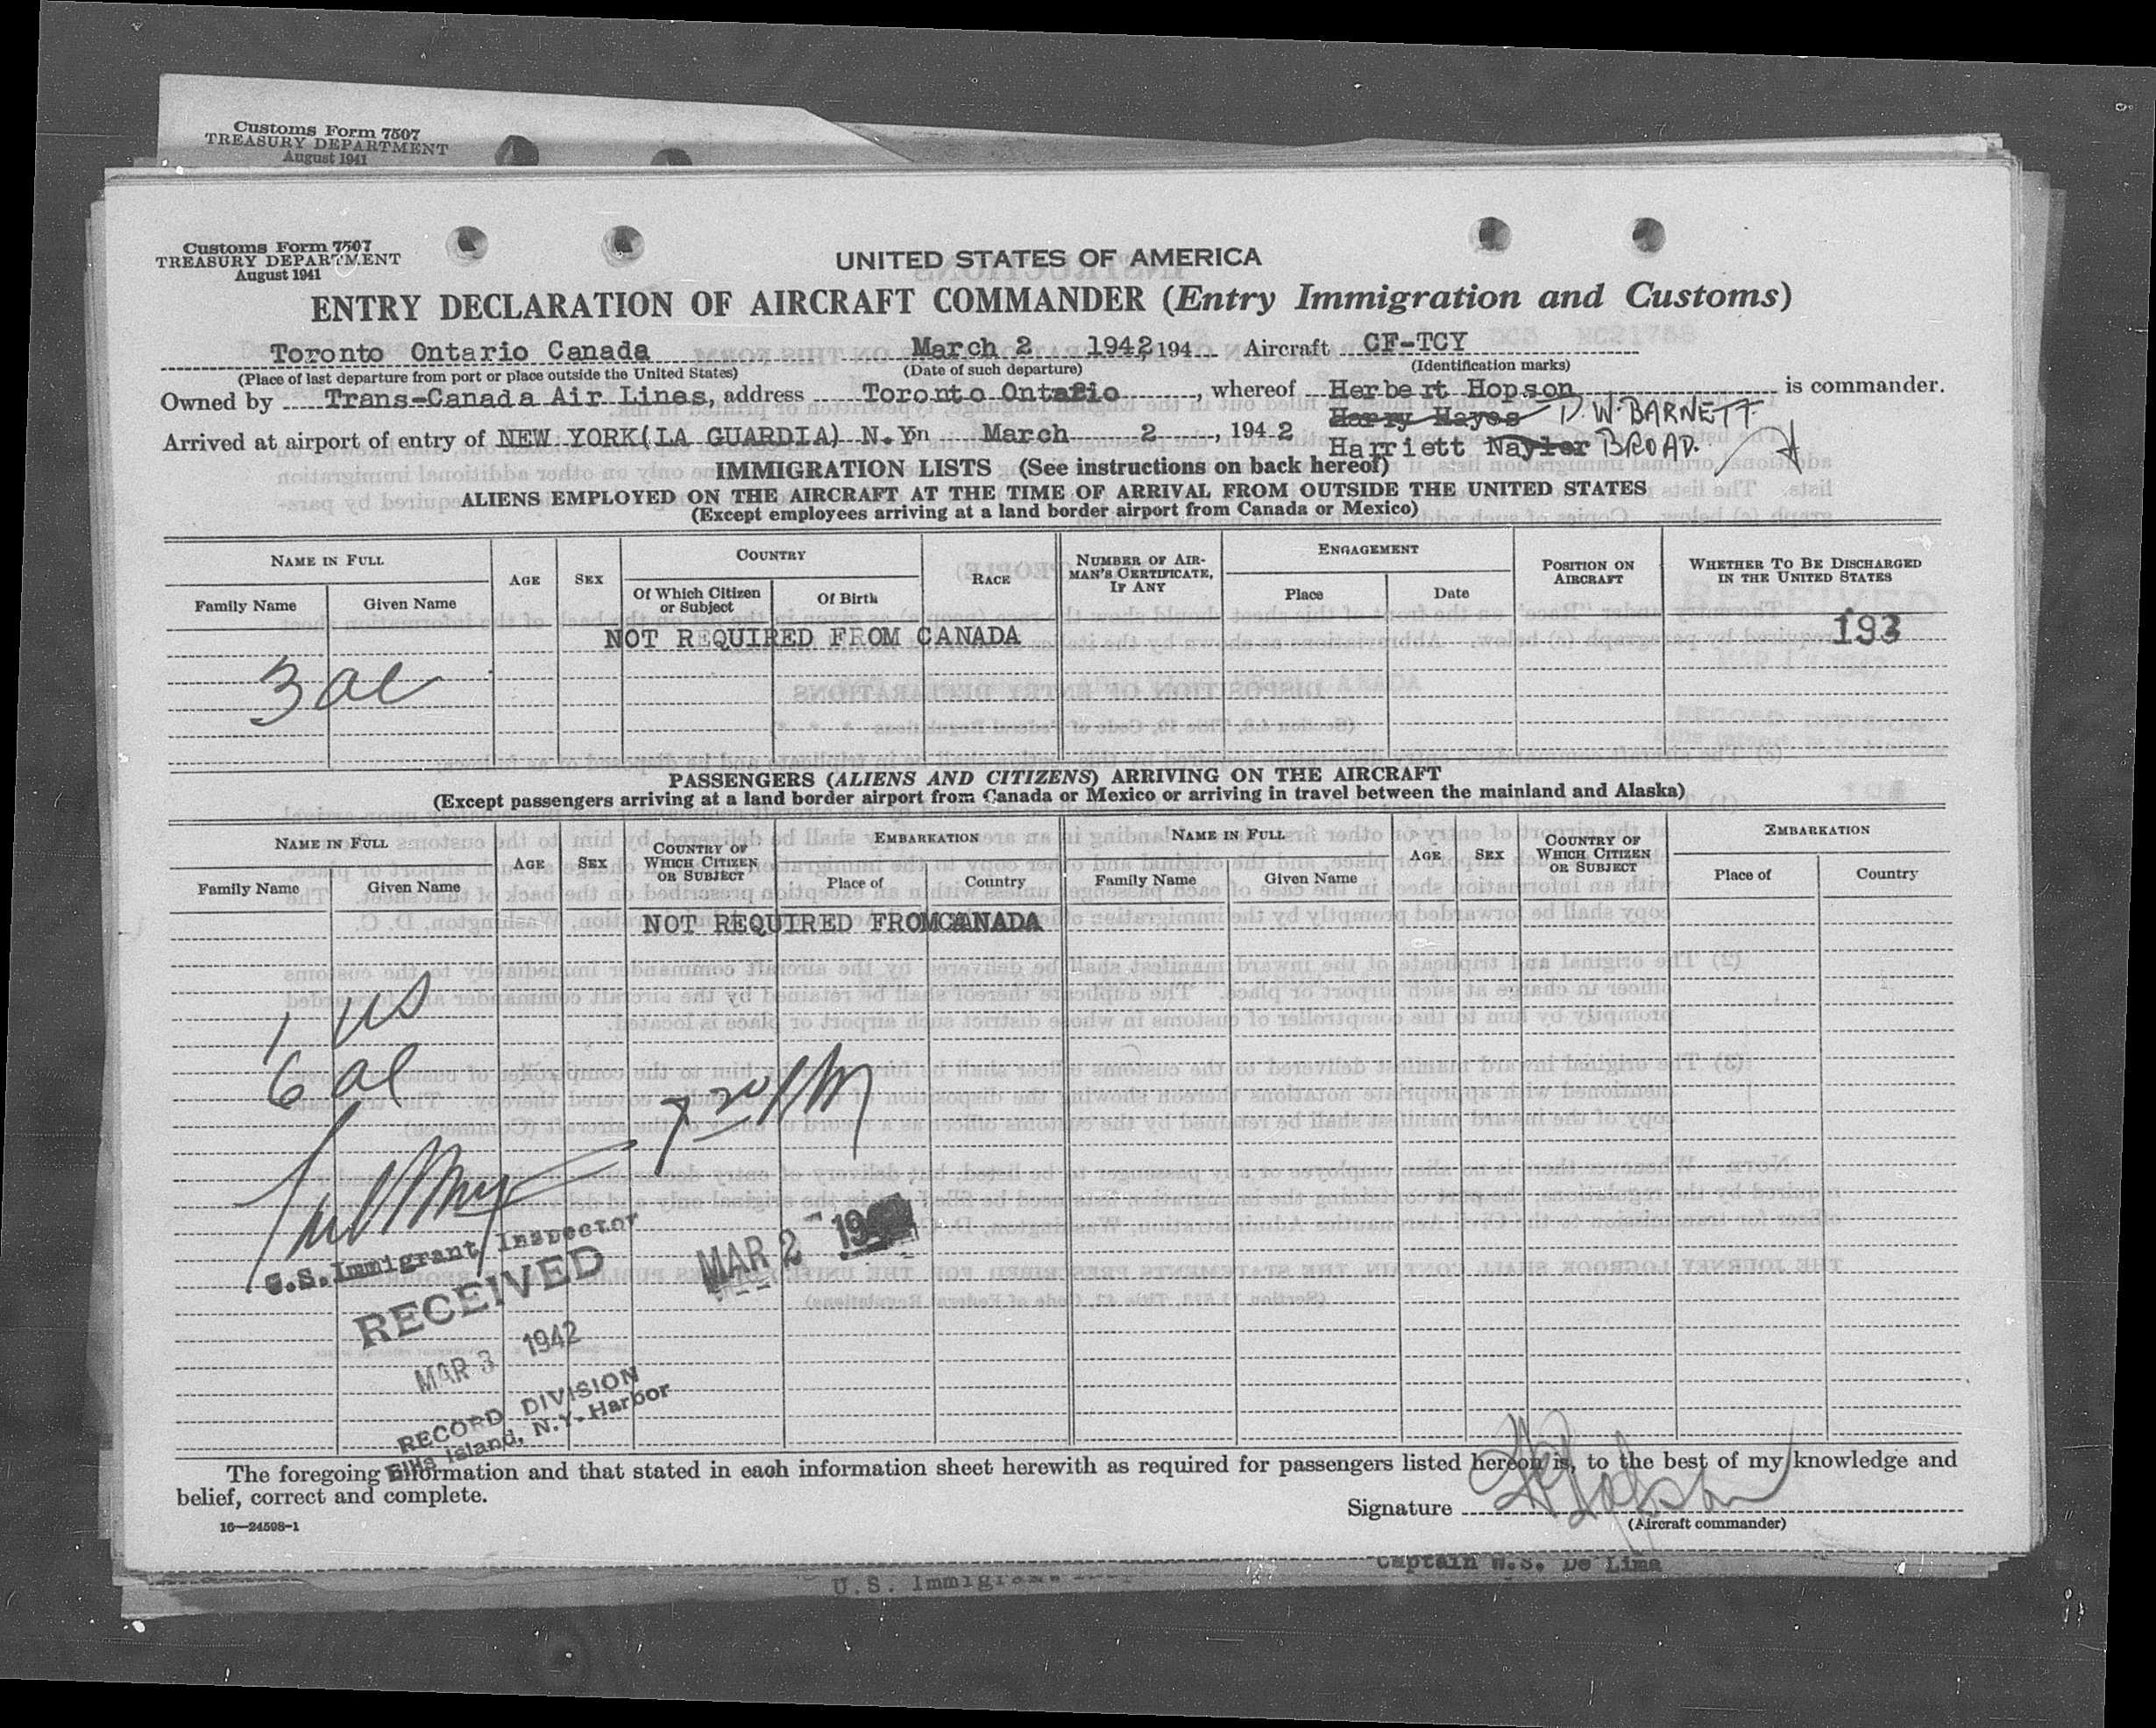 Customs Form 7507
TREASURY DEPARTMENT
August 1941
Customs Form 7507
TREASURY DEPARTMENT
August 1941
UNITED STATES OF AMERICA
ENTRY DECLARATION OF AIRCRAFT COMMANDER (Entry Immigration and Customs)
Toronto Ontario Canada March 2 1942, 194 Aircraft CF-TCY
(Place of last departure from port or place outside the United States) (Date of such departure) (Identification marks)
Owned by Trans-Canada Air Lines, address Toronto Ontario, whereof Herbert Hopson is commander.
Harry Hayes D. W. BARNETT
Arrived at airport of entry of NEW YORK(LA GUARDIA) N.Y. March 2, 1942
Harriett Nayler BROAD.
IMMIGRATION LISTS (See instructions on back hereof)
ALIENS EMPLOYED ON THE AIRCRAFT AT THE TIME OF ARRIVAL FROM OUTSIDE THE UNITED STATES
(Except employees arriving at a land border airport from Canada or Mexico)
NAME IN FULL AGE SEX COUNTRY RACE NUMBER OF AIRMAN'S CERTIFICATE, IF ANY ENGAGEMENT POSITION ON AIRCRAFT WHETHER TO BE DISCHARGED IN THE UNITED STATES
Family Name Given Name Of Which Citizen or Subject Of Birth Place Date
NOT REQUIRED FROM CANADA 193
3 al
PASSENGERS (ALIENS AND CITIZENS) ARRIVING ON THE AIRCRAFT
(Except passengers arriving at a land border airport from Canada or Mexico or arriving in travel between the mainland and Alaska)
NAME IN FULL AGE SEX COUNTRY OF WHICH CITIZEN OR SUBJECT EMBARKATION NAME IN FULL AGE SEX COUNTRY OF WHICH CITIZEN OR SUBJECT EMBARKATION
Family Name Given Name Place of Country Family Name Given Name Place of Country
NOT REQUIRED FROM CANADA
1 US
6 al
U.S. Immigrant Inspector
MAR 2 - 194
RECEIVED
MAR 3 1942
RECORD DIVISION
Ellis Island, N.Y. Harbor
The foregoing information and that stated in each information sheet herewith as required for passengers listed hereon is, to the best of my knowledge and
belief, correct and complete.
Signature
(Aircraft commander)
16—24598-1
Captain W.S. De Lima
U.S. Immigrant